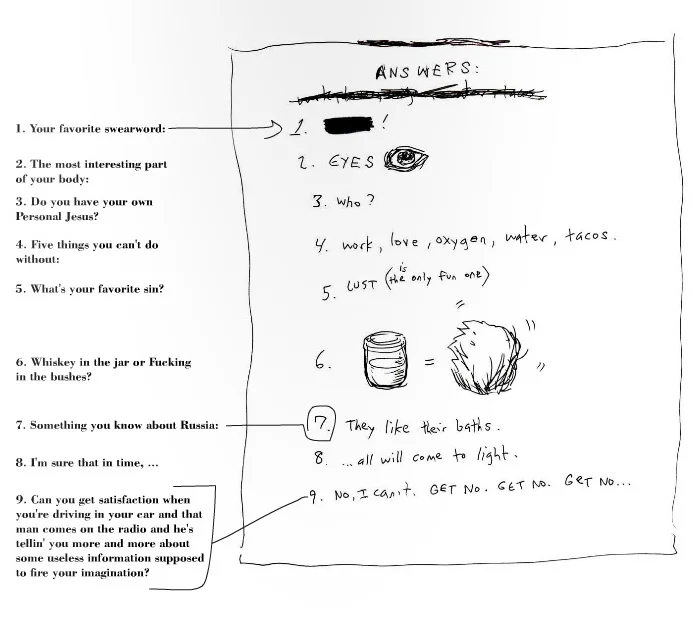 ANSWERS:
1. Your favorite swearword:
1. !
2. The most interesting part
of your body:
2. EYES
3. Do you have your own
Personal Jesus?
3. Who?
4. Five things you can't do
without:
4. work, love, oxygen, water, tacos.
5. What's your favorite sin?
5. LUST (is the only fun one)
6. Whiskey in the jar or Fucking
in the bushes?
6. =
7. Something you know about Russia:
7. They like their baths.
8. I'm sure that in time, ...
8. ...all will come to light.
9. Can you get satisfaction when
you're driving in your car and that
man comes on the radio and he's
tellin' you more and more about
some useless information supposed
to fire your imagination?
9. No, I can't. GET No. GET No. GET No...